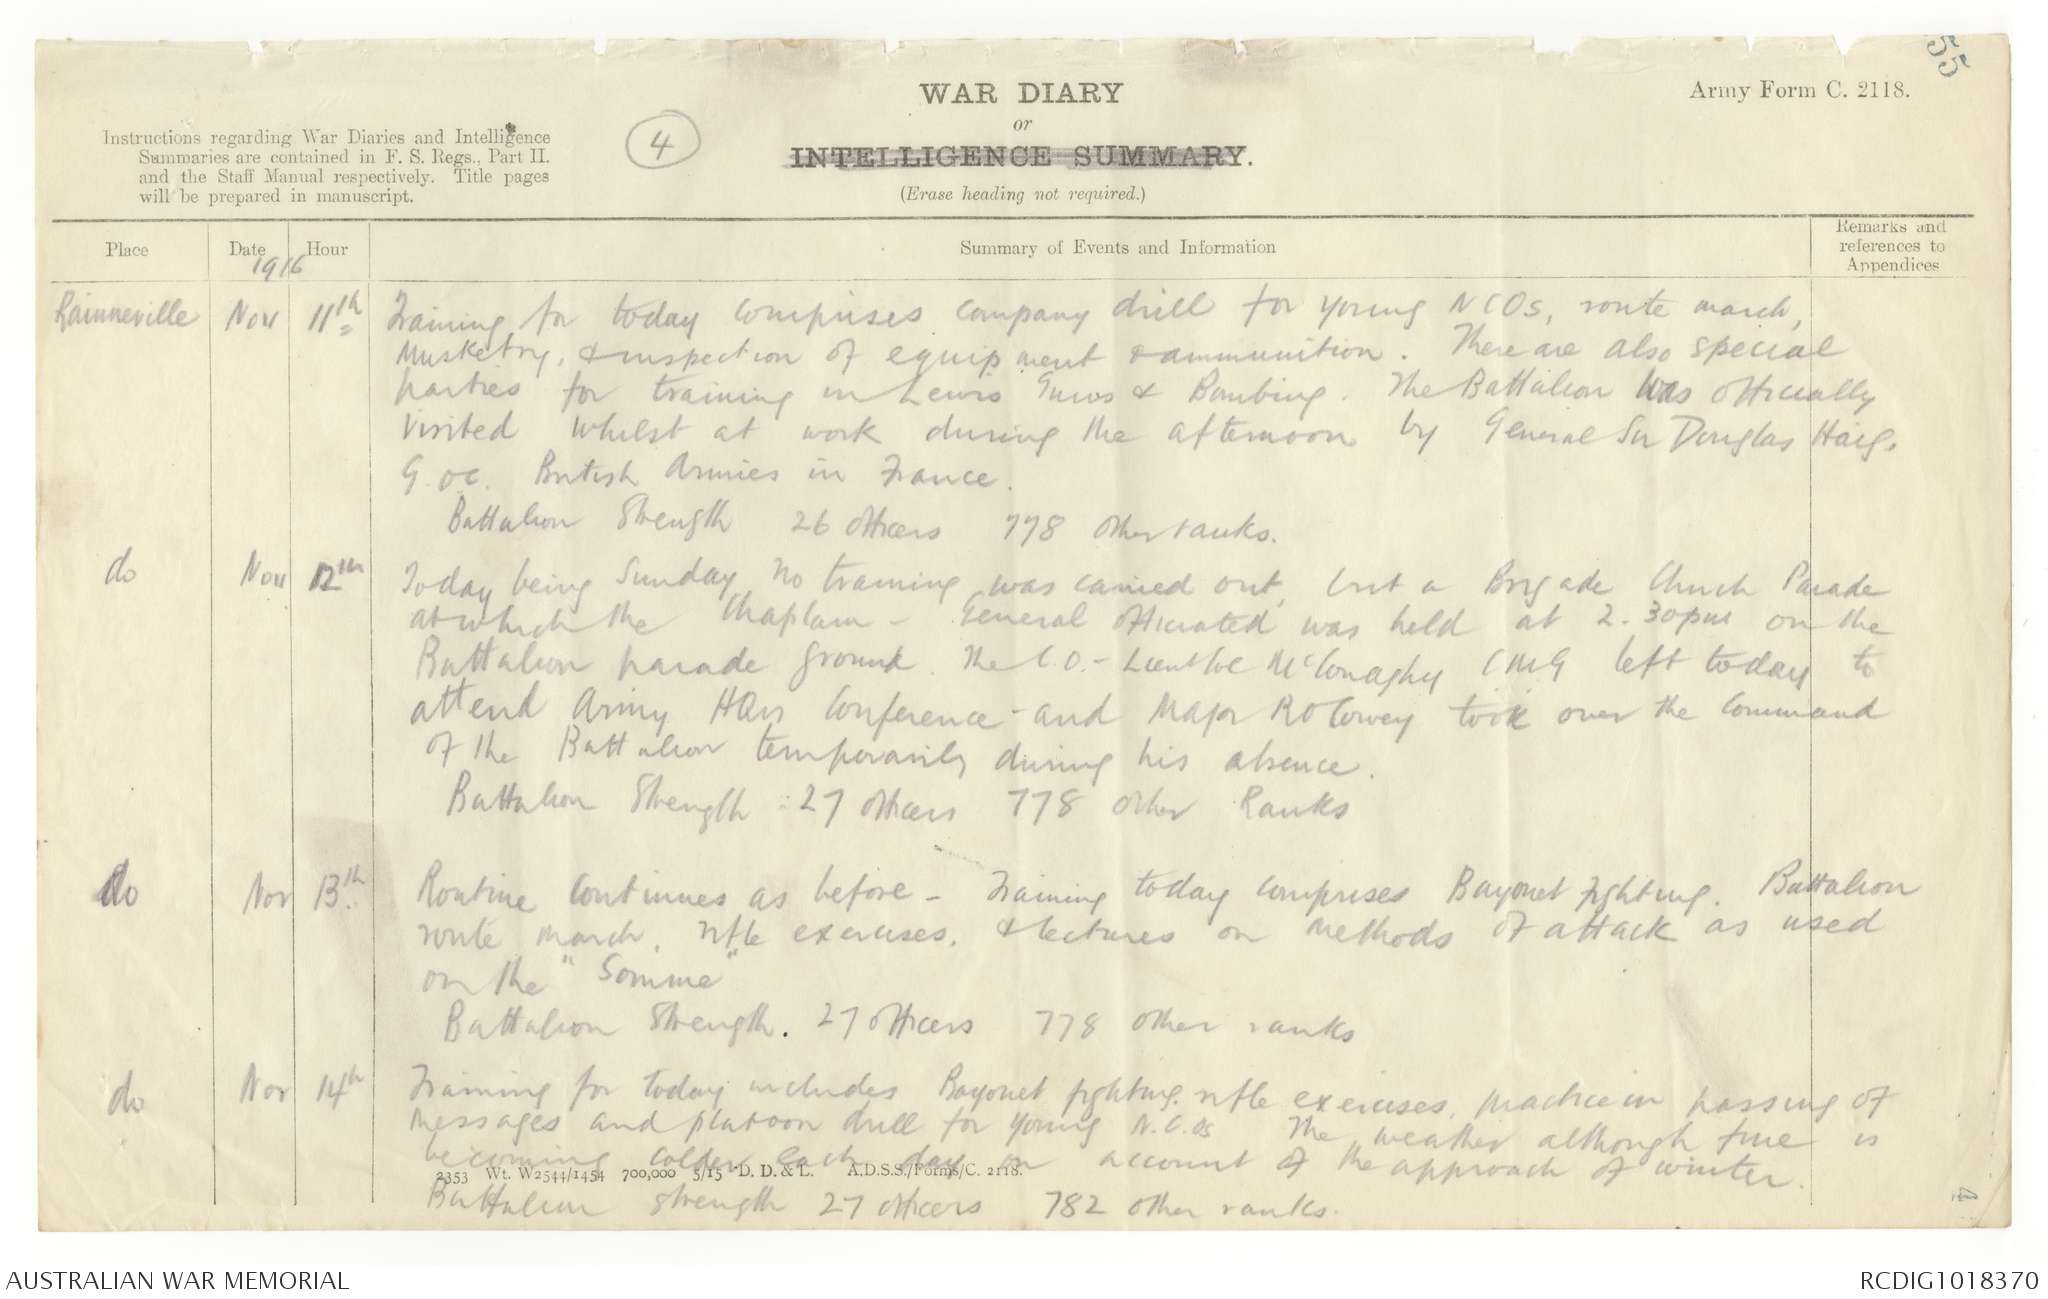 55
WAR DIARY
or
INTELLIGENCE SUMMARY.
(Erase heading not required.)
Army Form C. 2118.
Instructions regarding War Diaries and Intelligence
Summaries are contained in F. S. Regs., Part II.
and the Staff Manual respectively. Title pages
will be prepared in manuscript.
4
Place Date Hour Summary of Events and Information Remarks and references to Appendices
1916
Rainneville Nov 11th Training for today comprises company drill for young NCOs, route march,
Musketry, & inspection of equipment & ammunition. There are also special
parties for training in Lewis Guns & Bombing. The Battalion was officially
visited whilst at work during the afternoon by General Sir Douglas Haig,
G.O.C. British Armies in France.
Battalion Strength 26 officers 778 other ranks.
do Nov 12th Today being Sunday no training was carried out, but a Brigade Church Parade
at which the Chaplain - General officiated was held at 2.30pm on the
Battalion parade ground. The C.O. - Lieut Col McConaghy CMG left today to
attend Army HQrs Conference - and Major RO Cowey took over the command
of the Battalion temporarily during his absence.
Battalion Strength :27 officers 778 other Ranks
do Nov 13th Routine continues as before - Training today comprises Bayonet fighting. Battalion
route march, rifle exercises, & lectures on methods of attack as used
on the "Somme"
Battalion Strength. 27 officers 778 other ranks
do Nov 14th Training for today includes Bayonet fighting, rifle exercises, practice in passing of
messages and platoon drill for young N.C.Os The weather although fine is
becoming colder each day on account of the approach of winter.
2353 Wt. W2544/1454 700,000 5/15 D. D. & L. A.D.S.S./Forms/C. 2118.
Battalion strength 27 officers 782 other ranks.
AUSTRALIAN WAR MEMORIAL
RCDIG1018370